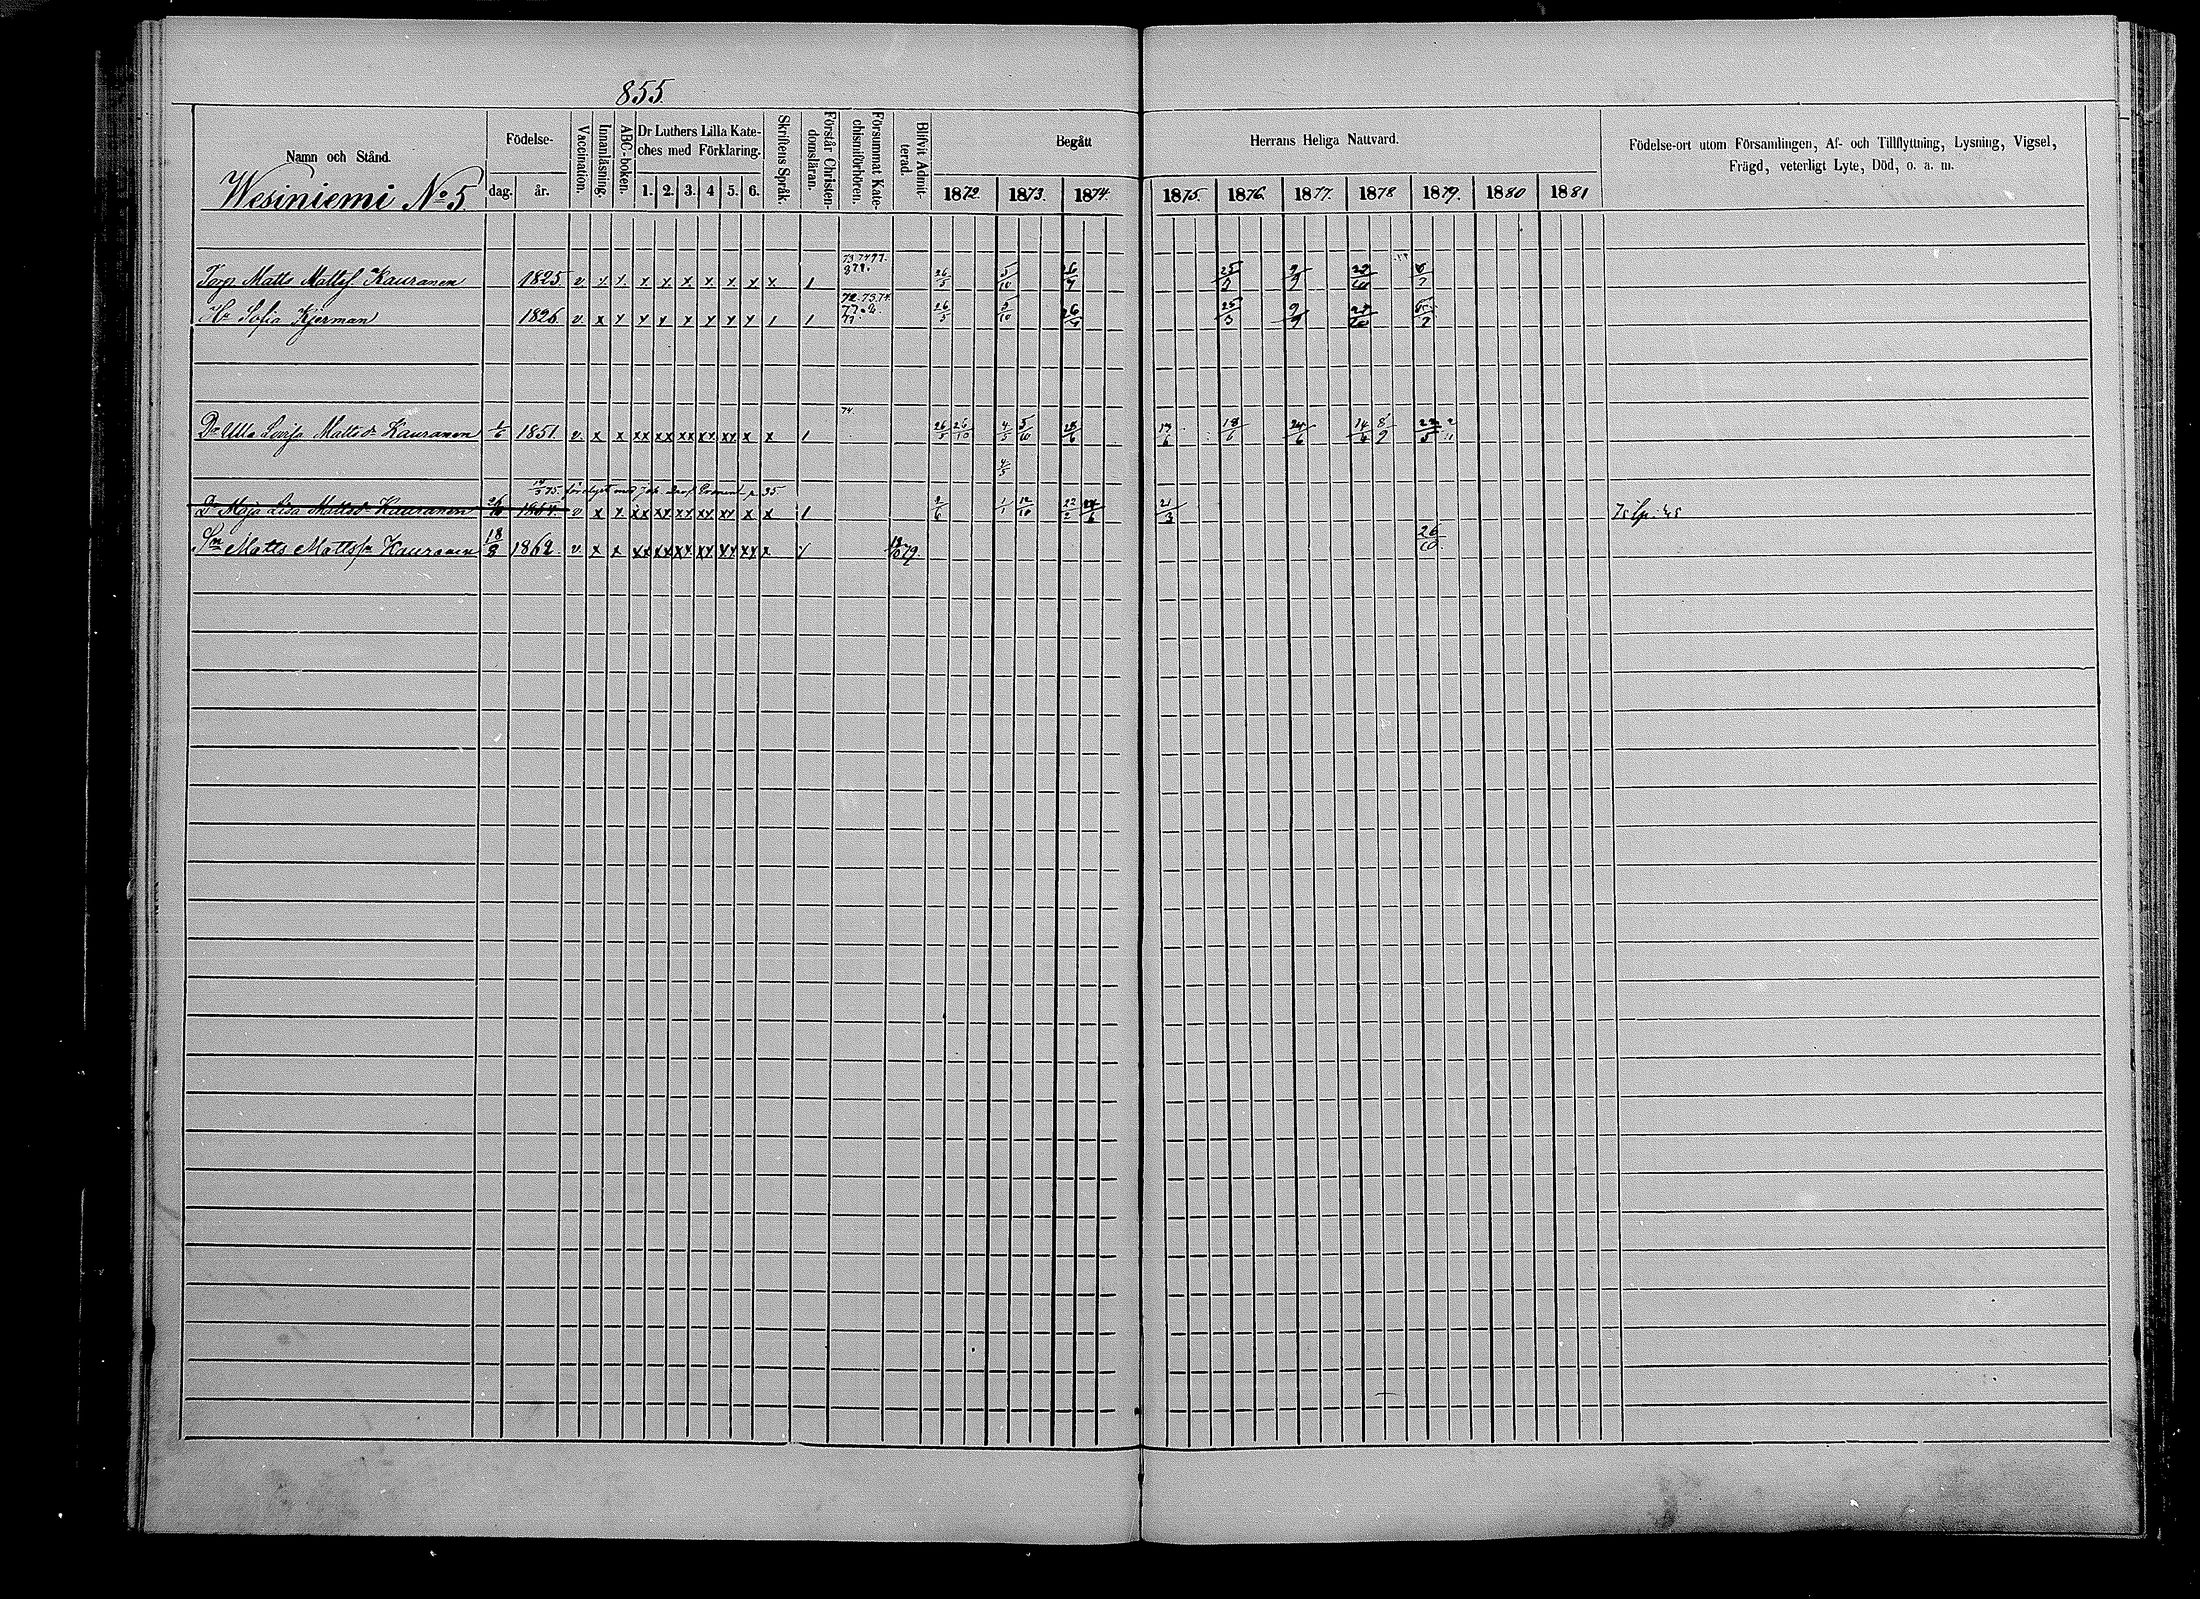 855.
Namn och Stånd.
Wesiniemi No 5.
Födelse-
dag. år.
Vaccination.
Innanläsning.
ABC-boken.
Dr Luthers Lilla Kate-
ches med Förklaring.
1. 2. 3. 4 5. 6.
Skriftens Språk.
Förstår Christen-
domsläran.
Försummat Kate-
chismiförhören.
Blifvit Admit-
terad.
Begått
1872. 1873. 1874.
Herrans Heliga Nattvard.
1875. 1876. 1877. 1878 1879. 1880 1881
Födelse-ort utom Församlingen, Af- och Tillflyttning, Lysning, Vigsel,
Frägd, veterligt Lyte, Död, o. a. m.
Torp. Matts Mattsf. Kauranen 1825. v. x x. x x x x x x x 1 26/5 5/10 26/7 25/3 9/9
Hu Sofia Kjerman 1826. v. x x x x x x x x 1 1 72. 73. 74. 26/5 5/10 26/7 25/3 9/9
Dr Ulla Lovisa Mattsdr Kauranen 1851. v. x x xx xx xx xx xx x x 1 74. 26/5 26/10 4/5 5/10 13/6 18/6 24/6 14/4 8/9
4/5
Dr Maja Lisa Mattsdr Kauranen 1854. v x x xx xx xx xx xx x x 1 2/6 1/1 12/10 22/2 21/3
Sn Matts Mattsson Kauranen 18/8 1862. v. x x xx xx xx xx xx xx x 26/10